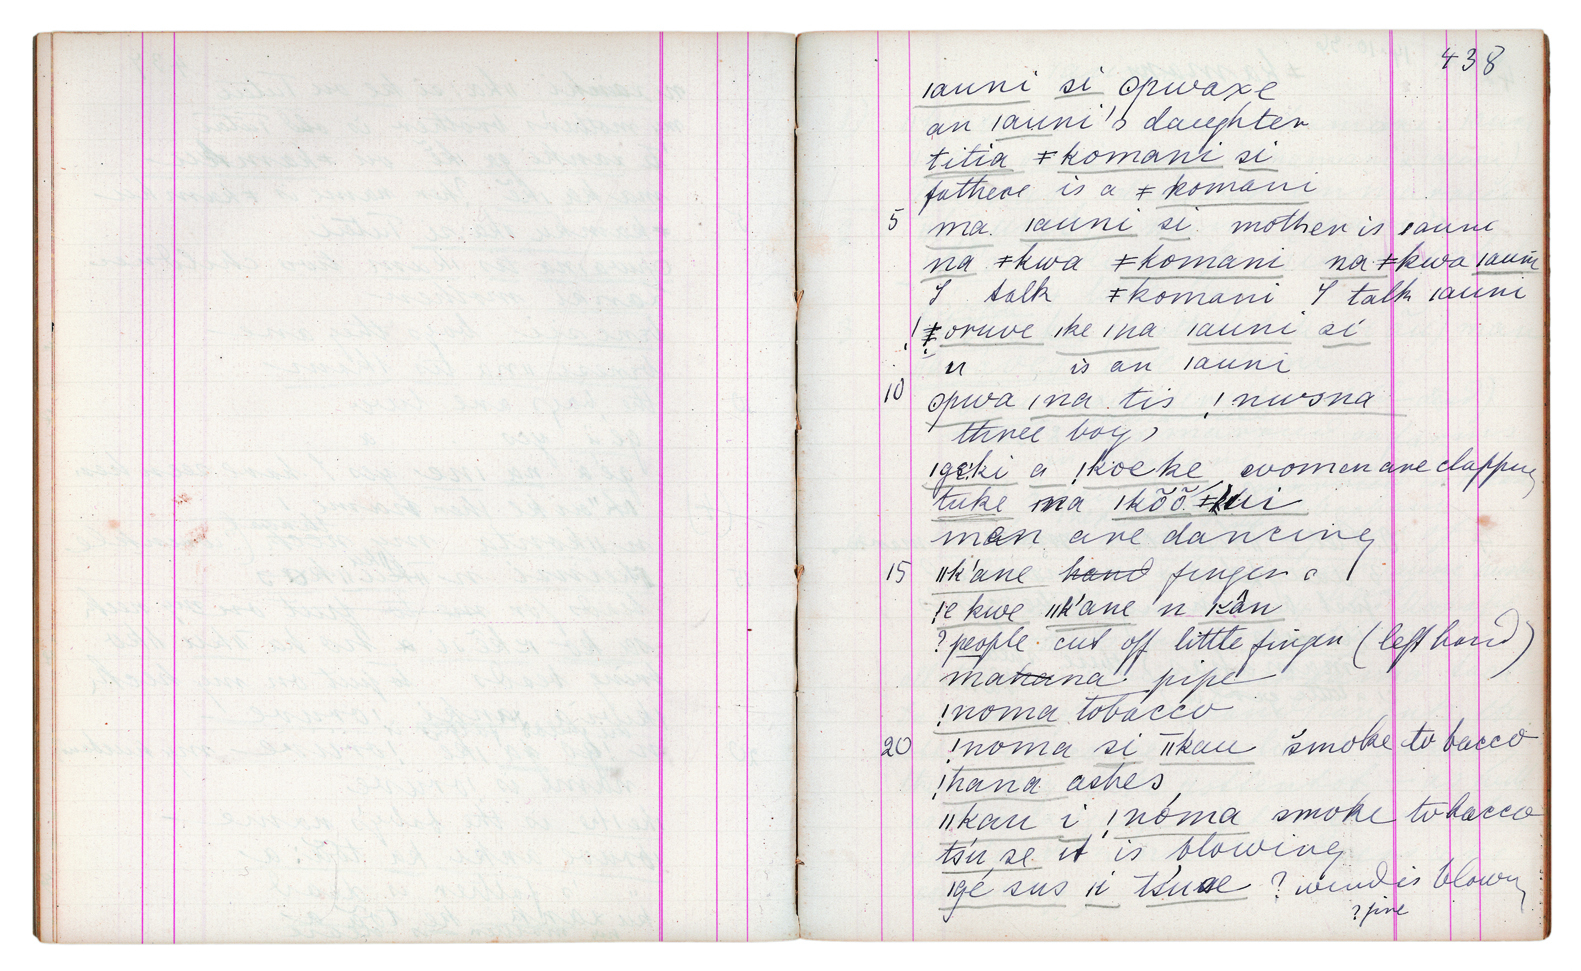 438
ǀauni si ɔpwaxe
an ǀauni's daughter
titia ǂkomani si
fathere is a ǂkomani
5 ma ǀauni si mother is ǀauni
na ǂkwa ǂkomani na ǂkwa ǀauni
I talk ǂkomani I talk ǀauni
oruve ǀke ǀna ǀauni si
" is an ǀauni
10 ɔpwa ǀna tis ǃnwɔna
three boys
a ǃkoeke women are clapping
tuke na ǀkõõ
men are dancing
15 ǁk'ane hand finger
ǃe kwe ǁk'ane n
? people cut off little finger (left hand)
mahana pipe
ǃnoma tobacco
20 ǃnoma si ǁkau smoke tobacco
ǃhana ashes
ǁkau i ǃnoma smoke tobacco
tsu se it is blowing
ǀgé sus ? wind is blowing
? fire